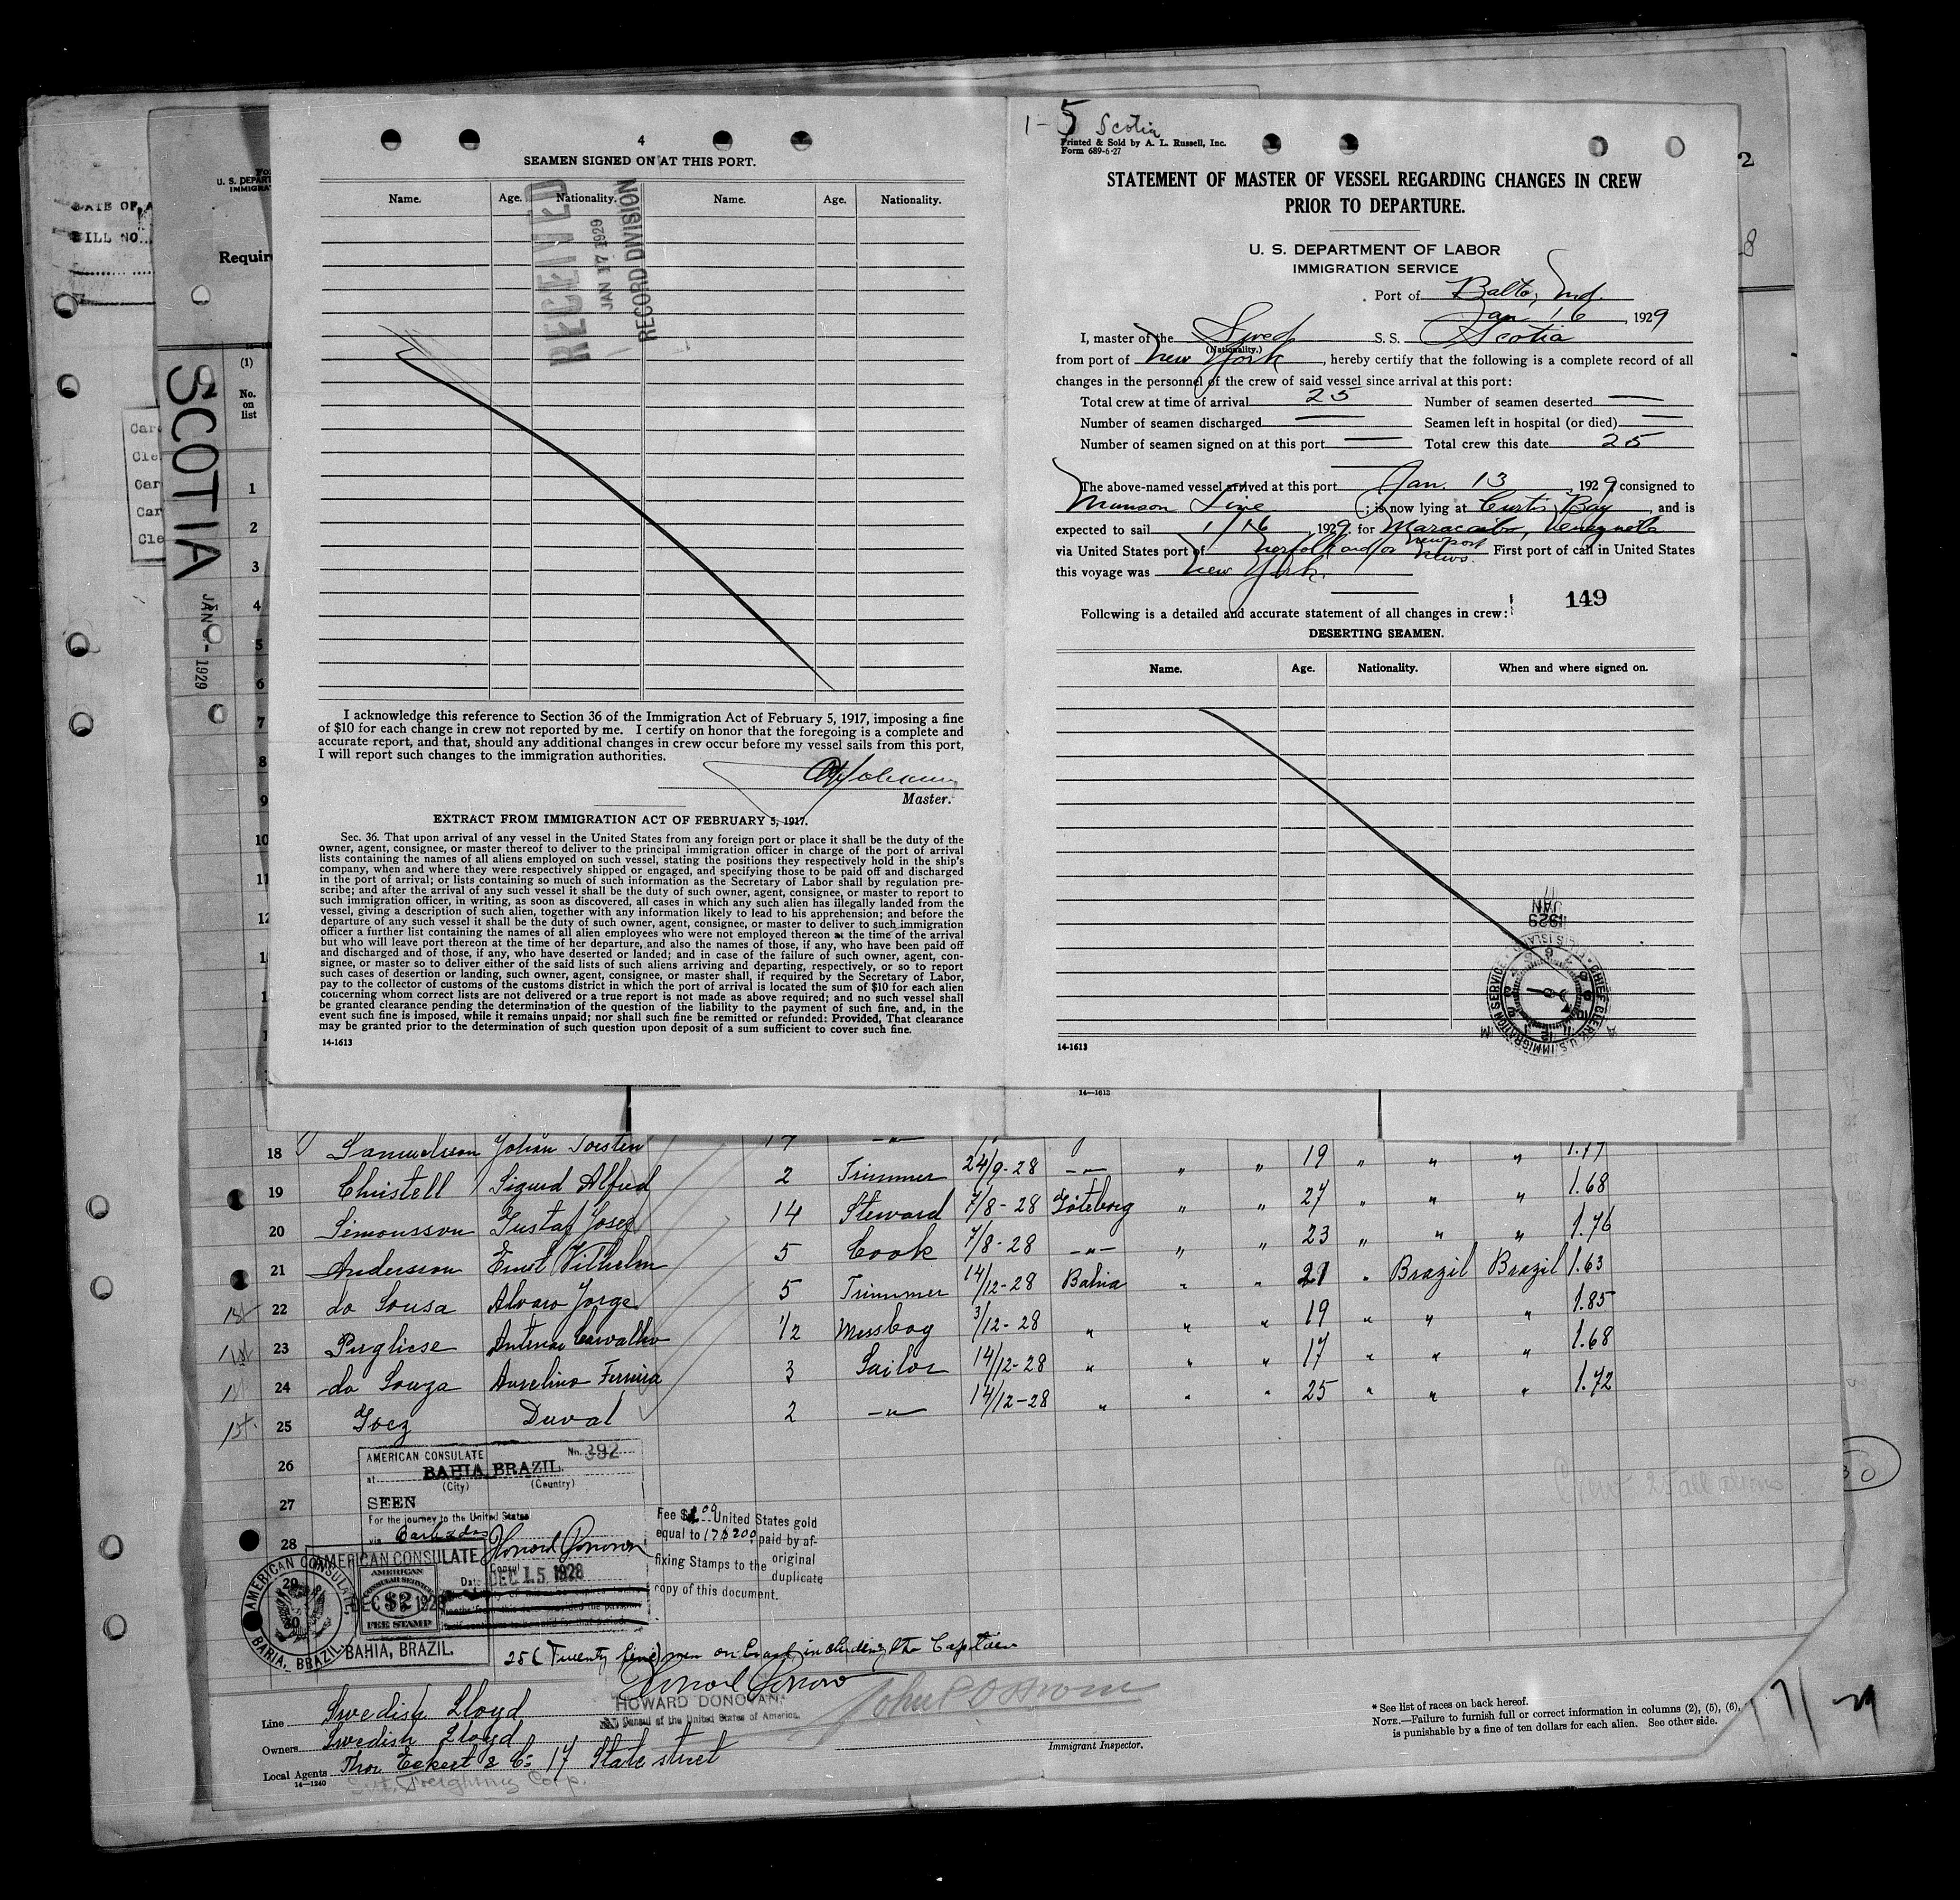 4
SEAMEN SIGNED ON AT THIS PORT.
Name. Age. Nationality. Name. Age. Nationality.
RECEIVED
JAN 17 1929
RECORD DIVISION
I acknowledge this reference to Section 36 of the Immigration Act of February 5, 1917, imposing a fine
of $10 for each change in crew not reported by me. I certify on honor that the foregoing is a complete and
accurate report, and that, should any additional changes in crew occur before my vessel sails from this port,
I will report such changes to the immigration authorities.
Master.
EXTRACT FROM IMMIGRATION ACT OF FEBRUARY 5, 1917.
Sec. 36. That upon arrival of any vessel in the United States from any foreign port or place it shall be the duty of the
owner, agent, consignee, or master thereof to deliver to the principal immigration officer in charge of the port of arrival
lists containing the names of all aliens employed on such vessel, stating the positions they respectively hold in the ship's
company, when and where they were respectively shipped or engaged, and specifying those to be paid off and discharged
in the port of arrival; or lists containing so much of such information as the Secretary of Labor shall by regulation pre-
scribe; and after the arrival of any such vessel it shall be the duty of such owner, agent, consignee, or master to report to
such immigration officer, in writing, as soon as discovered, all cases in which any such alien has illegally landed from the
vessel, giving a description of such alien, together with any information likely to lead to his apprehension; and before the
departure of any such vessel it shall be the duty of such owner, agent, consignee, or master to deliver to such immigration
officer a further list containing the names of all alien employees who were not employed thereon at the time of the arrival
but who will leave port thereon at the time of her departure, and also the names of those, if any, who have been paid off
and discharged and of those, if any, who have deserted or landed; and in case of the failure of such owner, agent, con-
signee, or master so to deliver either of the said lists of such aliens arriving and departing, respectively, or so to report
such cases of desertion or landing, such owner, agent, consignee, or master shall, if required by the Secretary of Labor,
pay to the collector of customs of the customs district in which the port of arrival is located the sum of $10 for each alien
concerning whom correct lists are not delivered or a true report is not made as above required; and no such vessel shall
be granted clearance pending the determination of the question of the liability to the payment of such fine, and, in the
event such fine is imposed, while it remains unpaid; nor shall such fine be remitted or refunded: Provided, That clearance
may be granted prior to the determination of such question upon deposit of a sum sufficient to cover such fine.
14-1613
1-5 Scotia
Printed & Sold by A. L. Russell, Inc.
Form 689-6-27
STATEMENT OF MASTER OF VESSEL REGARDING CHANGES IN CREW
PRIOR TO DEPARTURE.
U. S. DEPARTMENT OF LABOR
IMMIGRATION SERVICE
Port of Balto, Md.
Jan 16, 1929
I, master of the Swed S. S. Scotia
(Nationality.)
from port of New York, hereby certify that the following is a complete record of all
changes in the personnel of the crew of said vessel since arrival at this port:
Total crew at time of arrival 25 Number of seamen deserted —
Number of seamen discharged — Seamen left in hospital (or died) —
Number of seamen signed on at this port — Total crew this date 25
The above-named vessel arrived at this port Jan. 13, 1929 consigned to
Munson Line; is now lying at Curtis Bay, and is
expected to sail 1/16, 1929. for Maracaibo, Venezuela
via United States port of Norfolk and/or Newport News. First port of call in United States
this voyage was New York.
149
Following is a detailed and accurate statement of all changes in crew:
DESERTING SEAMEN.
Name. Age. Nationality. When and where signed on.
JAN
1929
CHIEF CLERK U.S. IMMIGRATION SERVICE
14-1613
14—1613
2
8
DATE OF A
BILL NO.
U. S. DEPART
IMMIGRA
Requir
SCOTIA
JAN 5- 1929
(1)
No.
on
list
Car
Cle
Car
Car
Cle
1
2
3
4
5
6
7
8
9
10
11
12
18 Samuelsson Johan Torsten 19 1.77
19 Christell Sigurd Alfred 2 Trimmer 24/9-28 —"— " " 27 " " " 1.68
20 Simonsson Gustaf Josef 14 Steward 7/8-28 Göteborg " " 23 " " " 1.76
21 Andersson Ernst Vilhelm 5 Cook 7/8-28 —"— " "
22 do Sousa Alvaro Jorge 5 Trimmer 14/12-28 Bahia " " 21 " Brazil Brazil 1.63
23 Pugliese Antenor Carvalho 1/2 Messboy 3/12-28 " " " 19 " " " 1.85
24 do Souza Aurelino Ferreira 3 Sailor 14/12-28 " " " 17 " " " 1.68
25 Goez Duval 2 —"— 14/12-28 " " " 25 " " " 1.72
26
27
28
AMERICAN CONSULATE No. 392
at BAHIA, BRAZIL.
(City) (Country)
SEEN
For the journey to the United States
via Barbados
Howard Donovan
Consul
Date DEC 15 1928
Fee $1.00 United States gold
equal to 17$200, paid by af-
fixing Stamps to the original
duplicate
copy of this document.
AMERICAN CONSULATE
BAHIA, BRAZIL.
AMERICAN
CONSULAR SERVICE
$2
FEE STAMP
DEC 1928
AMERICAN CONSULATE,
BAHIA, BRAZIL.
25 (Twenty five) men on board including the Captain
Howard Donovan
HOWARD DONOVAN.
Consul of the United States of America.
Crew 25 all aliens
30
Line Swedish Lloyd
Owners Swedish Lloyd
Local Agents Thor Eckert & Co 17 State street
14—1240
Immigrant Inspector.
* See list of races on back hereof.
NOTE.—Failure to furnish full or correct information in columns (2), (5), (6),
is punishable by a fine of ten dollars for each alien. See other side.